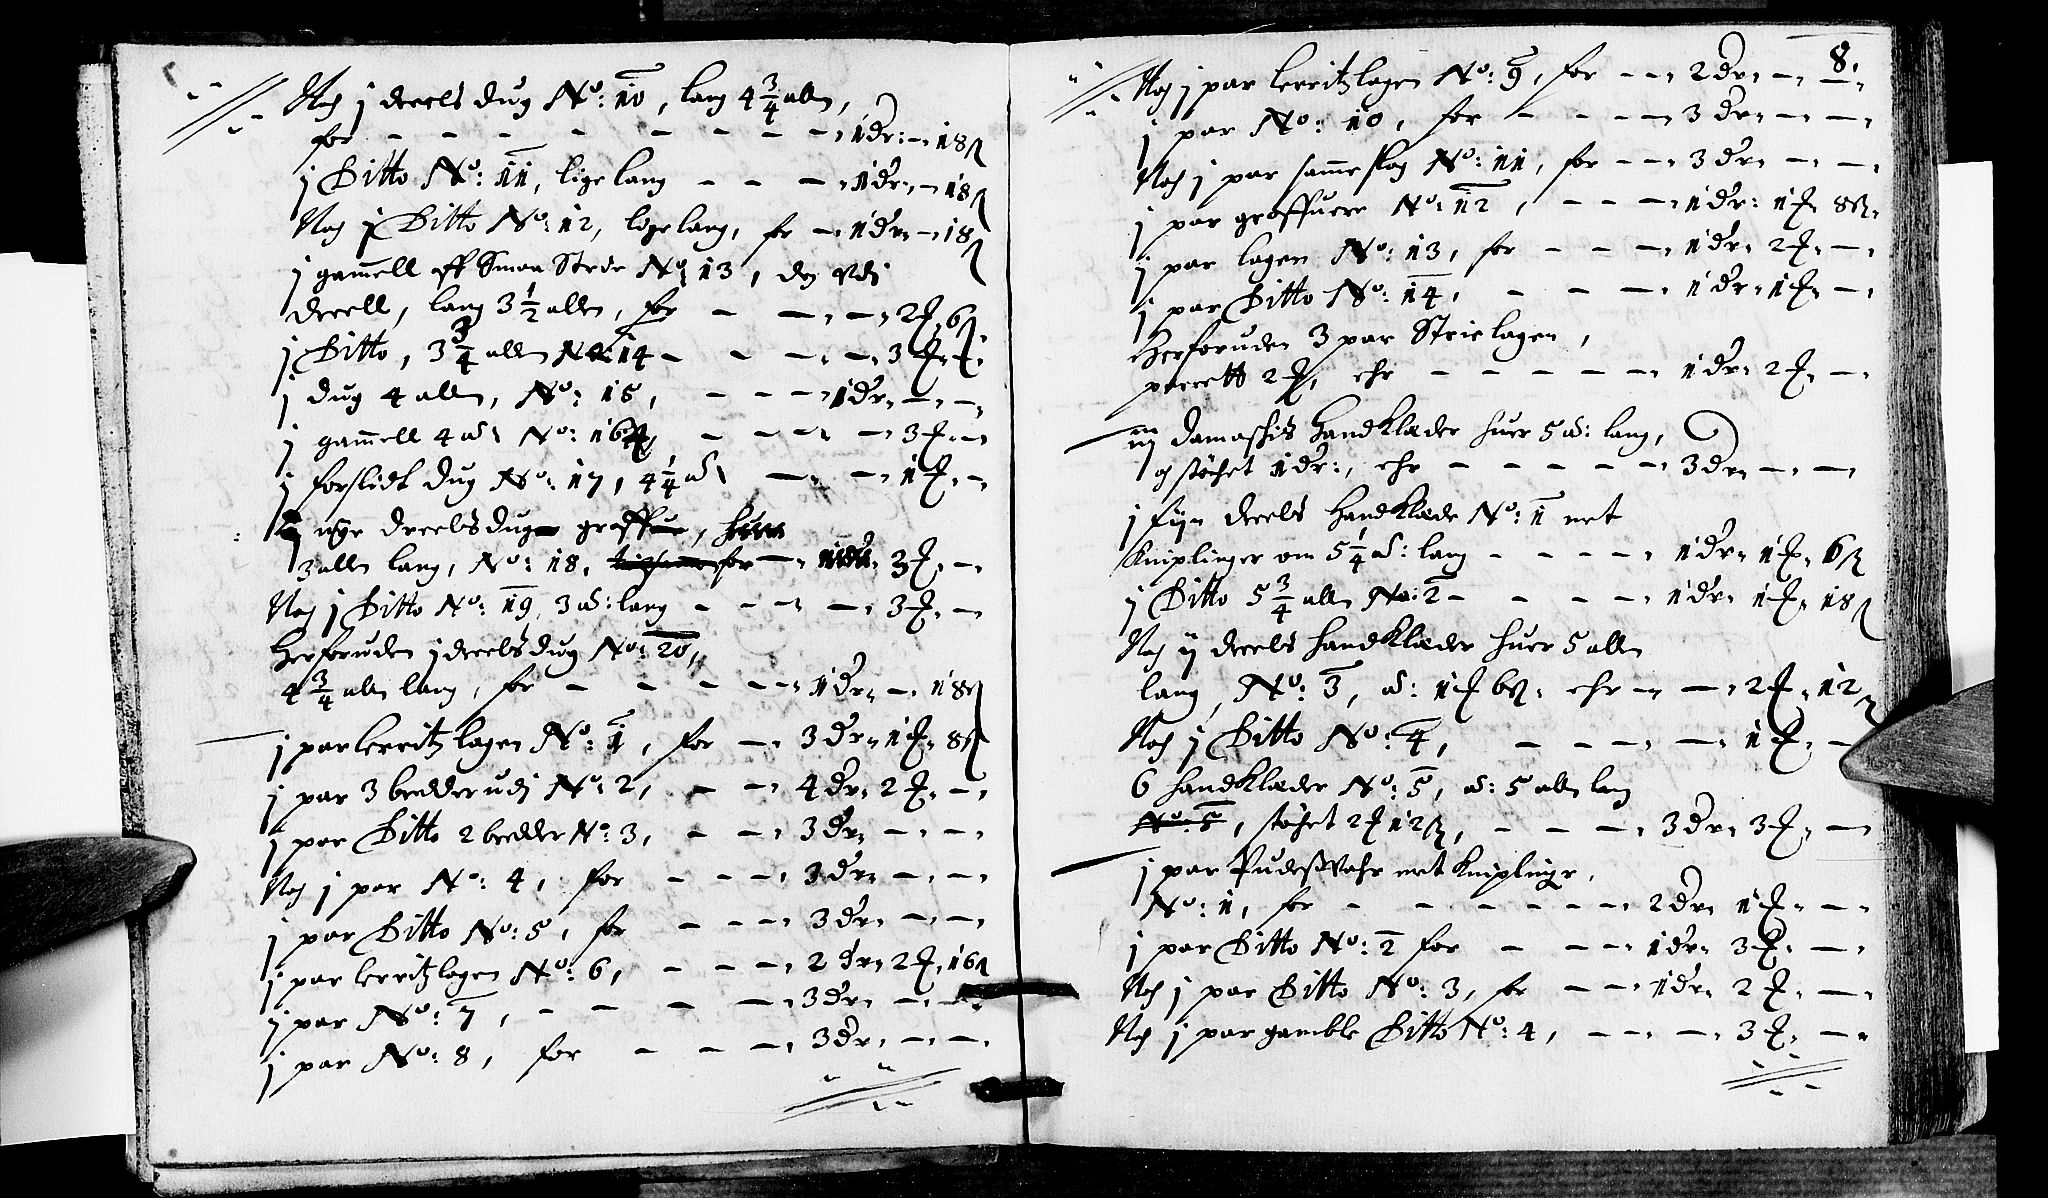 Noch j dreels dug No: 10, lang 4 3/4 allen,
for - - - - - - - - 1 dr: - 18 ß
j Ditto No: 11, lige lang - - - 1 dr: - 18 ß
Noch j Ditto No: 12, lige lang, for - 1 dr: - 18 ß
j gammell aff Smaa Stede No: 13, dog vdi
dreell, lang 3 1/2 allen, for - - - 2 ℳ 6 ß
j Ditto, 3 3/4 allen No: 14 - - - - 3 ℳ -
j dug 4 allen, No: 15, - - - 1 dr: - -
j gammell 4 al: No: 16, - - - - 3 ℳ -
j forslidt dug No: 17, 4 1/4 al: - - 1 ℳ -
nye dreels dug groffue, huer
3 allen lang, No: 18, - 3 ℳ -
Noch j Ditto No: 19, 3 al: lang - - - - 3 ℳ -
Herforuden j dreels dug No: 20,
4 3/4 allen lang, for - - - - - 1 dr: - 18 ß
j par lerritz lagen No: 1, for - 3 dr: 1 ℳ 8 ß
j par 3 bredder udj No: 2, - - 4 dr: 2 ℳ -
j par Ditto 2 bredder No: 3, - - 3 dr: - -
Noch j par No: 4, for - - - 3 dr: - -
j par Ditto No: 5, for - - - 3 dr: - -
j par lerritz lagen No: 6, - - - 2 dr: 2 ℳ 16 ß
j par No: 7, - - - - 3 dr: - -
j par No: 8, for - - - 3 dr: - -
8.
Noch j par lerritz lagen No: 9, for - - 2 dr: - -
j par No: 10, for - - - - 3 dr: - -
Noch j par samme slag No: 11, for - - 3 dr: - -
j par groffuere No: 12, - - - 1 dr: 1 ℳ 8 ß
j par lagen No: 13, for - - - 1 dr: 2 ℳ -
j par Ditto No: 14, - - - 1 dr: 1 ℳ -
Herforuden 3 par Strie lagen,
parrett 2 ℳ, ehr - - - - - 1 dr: 2 ℳ -
iij Damaskis Handklæder huer 5 al: lang,
og støchet 1 dr:, ehr - - - - - 3 dr: - -
j fijn dreels Handklæde No: 1 met
Kniplinger om 5 1/4 al: lang - - - - 1 dr: 1 ℳ 6 ß
j Ditto 5 3/4 allen No: 2 - - - - 1 dr: 1 ℳ 18 ß
Noch ij dreels Handklæder huer 5 allen
lang, No: 3, a: 1 ℳ 6 ß ehr - - 2 ℳ 12 ß
Noch j Ditto No: 4, - - - - 1 ℳ -
6 Handklæder No: 5, a: 5 allen lang
No: 5, støchet 2 ℳ 12 ß, - - - 3 dr: 3 ℳ -
j par Pudeswahr met Kniplinger,
No: 1, for - - - - - - 2 dr: 1 ℳ -
j par Ditto No: 2 for - - - 1 dr: 3 ℳ -
Noch j par Ditto No: 3, for - - 1 dr: 2 ℳ -
Noch j par gamble Ditto No: 4, - - - 3 ℳ -